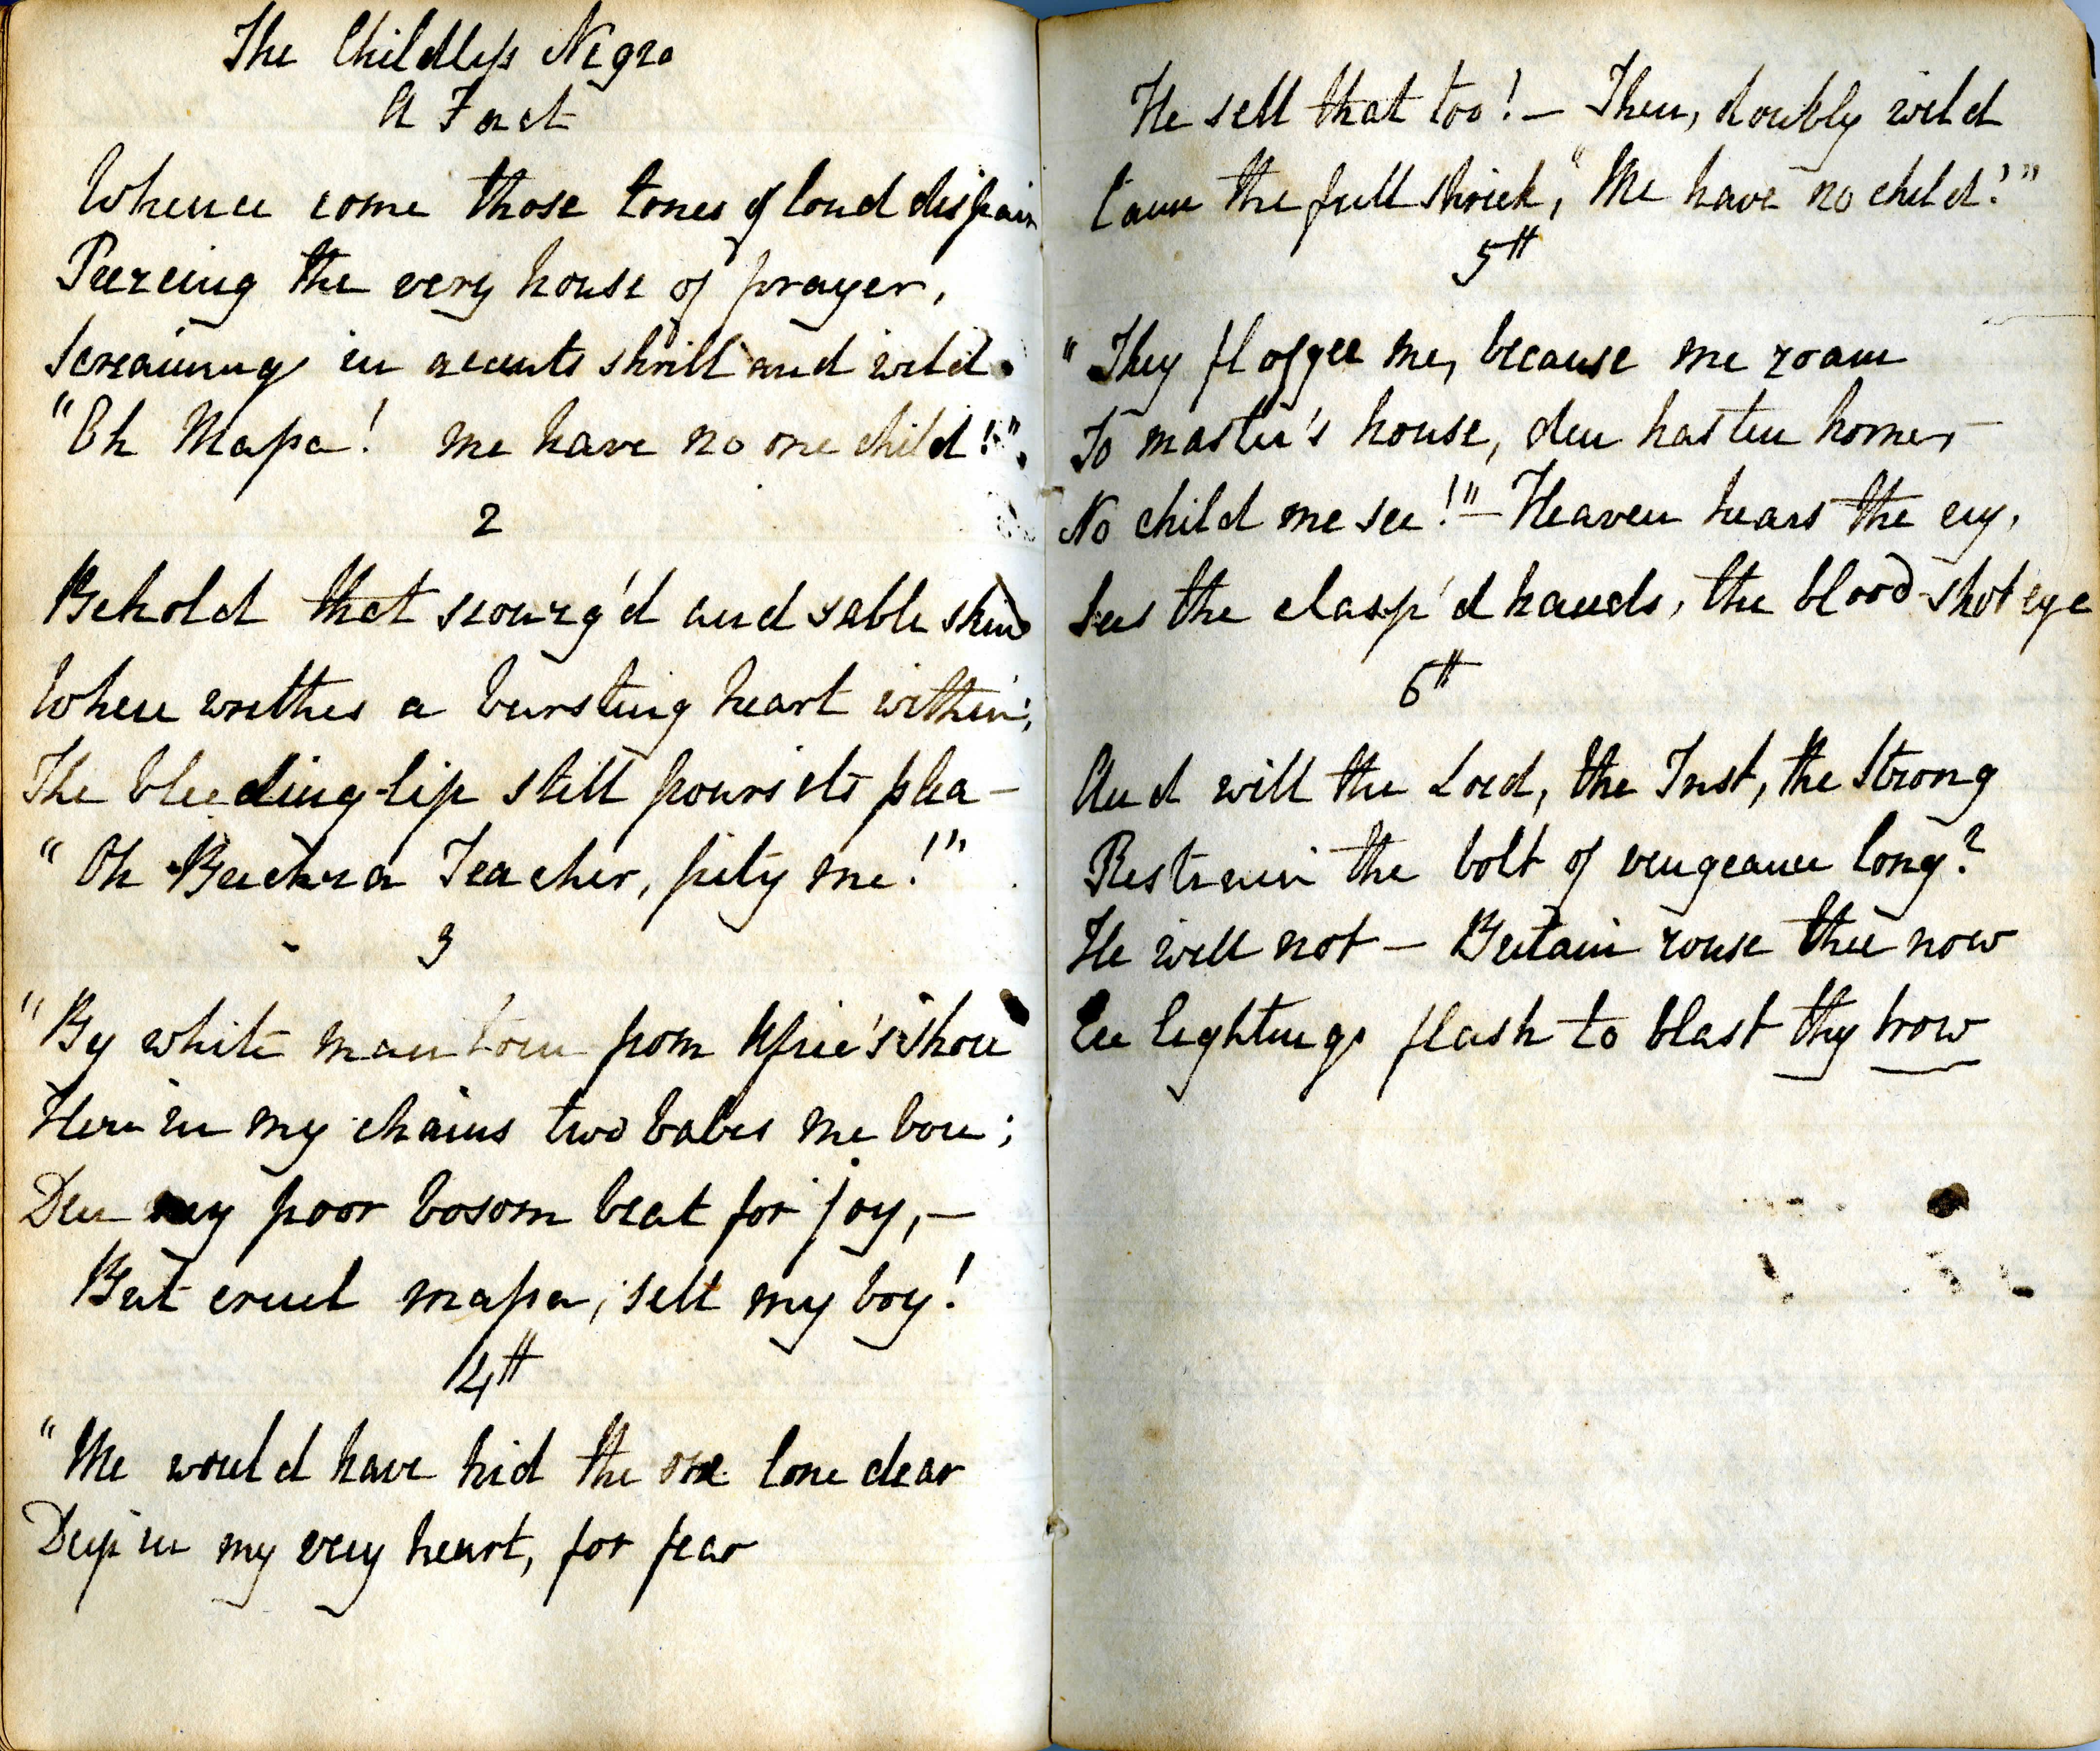 The Childless Negro
A Fact
Whence come those tones of loud despair
Peircing the very house of prayer,
Screaming in accents shrill and wild.
"Oh Massa! me have no one child!".
2
Behold that scourg'd and sable skin
Where writhes a bursting heart within;
The bleeding lip still pours its plea –
"Oh Backra Teacher, pity me!"
3
"By white man torn from Afric's shore
Here in my chains two babes me bore;
Den my poor bosom beat for joy, –
But cruel massa, sell my boy!
4th
"Me would have hid the one lone dear
Deep in my very heart, for fear
He sell that too! – Then, doubly wild
Came the full shriek, "Me have no child!"
5th
"They floggee me, because me roam
To master's house, den hasten home, –
No child me see!" – Heaven hears the cry,
Sees the clasp'd hands, the blood-shot eye
6th
And will the Lord, the Just, the Strong
Restrain the bolt of vengeance long?
He will not – Britain rouse thee now
Ere lightnings flash to blast thy brow